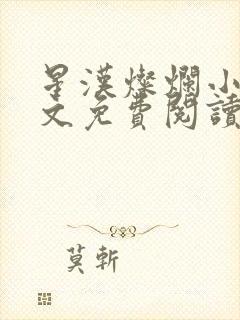 星漢燦爛小
文免費閱讀
莫斬